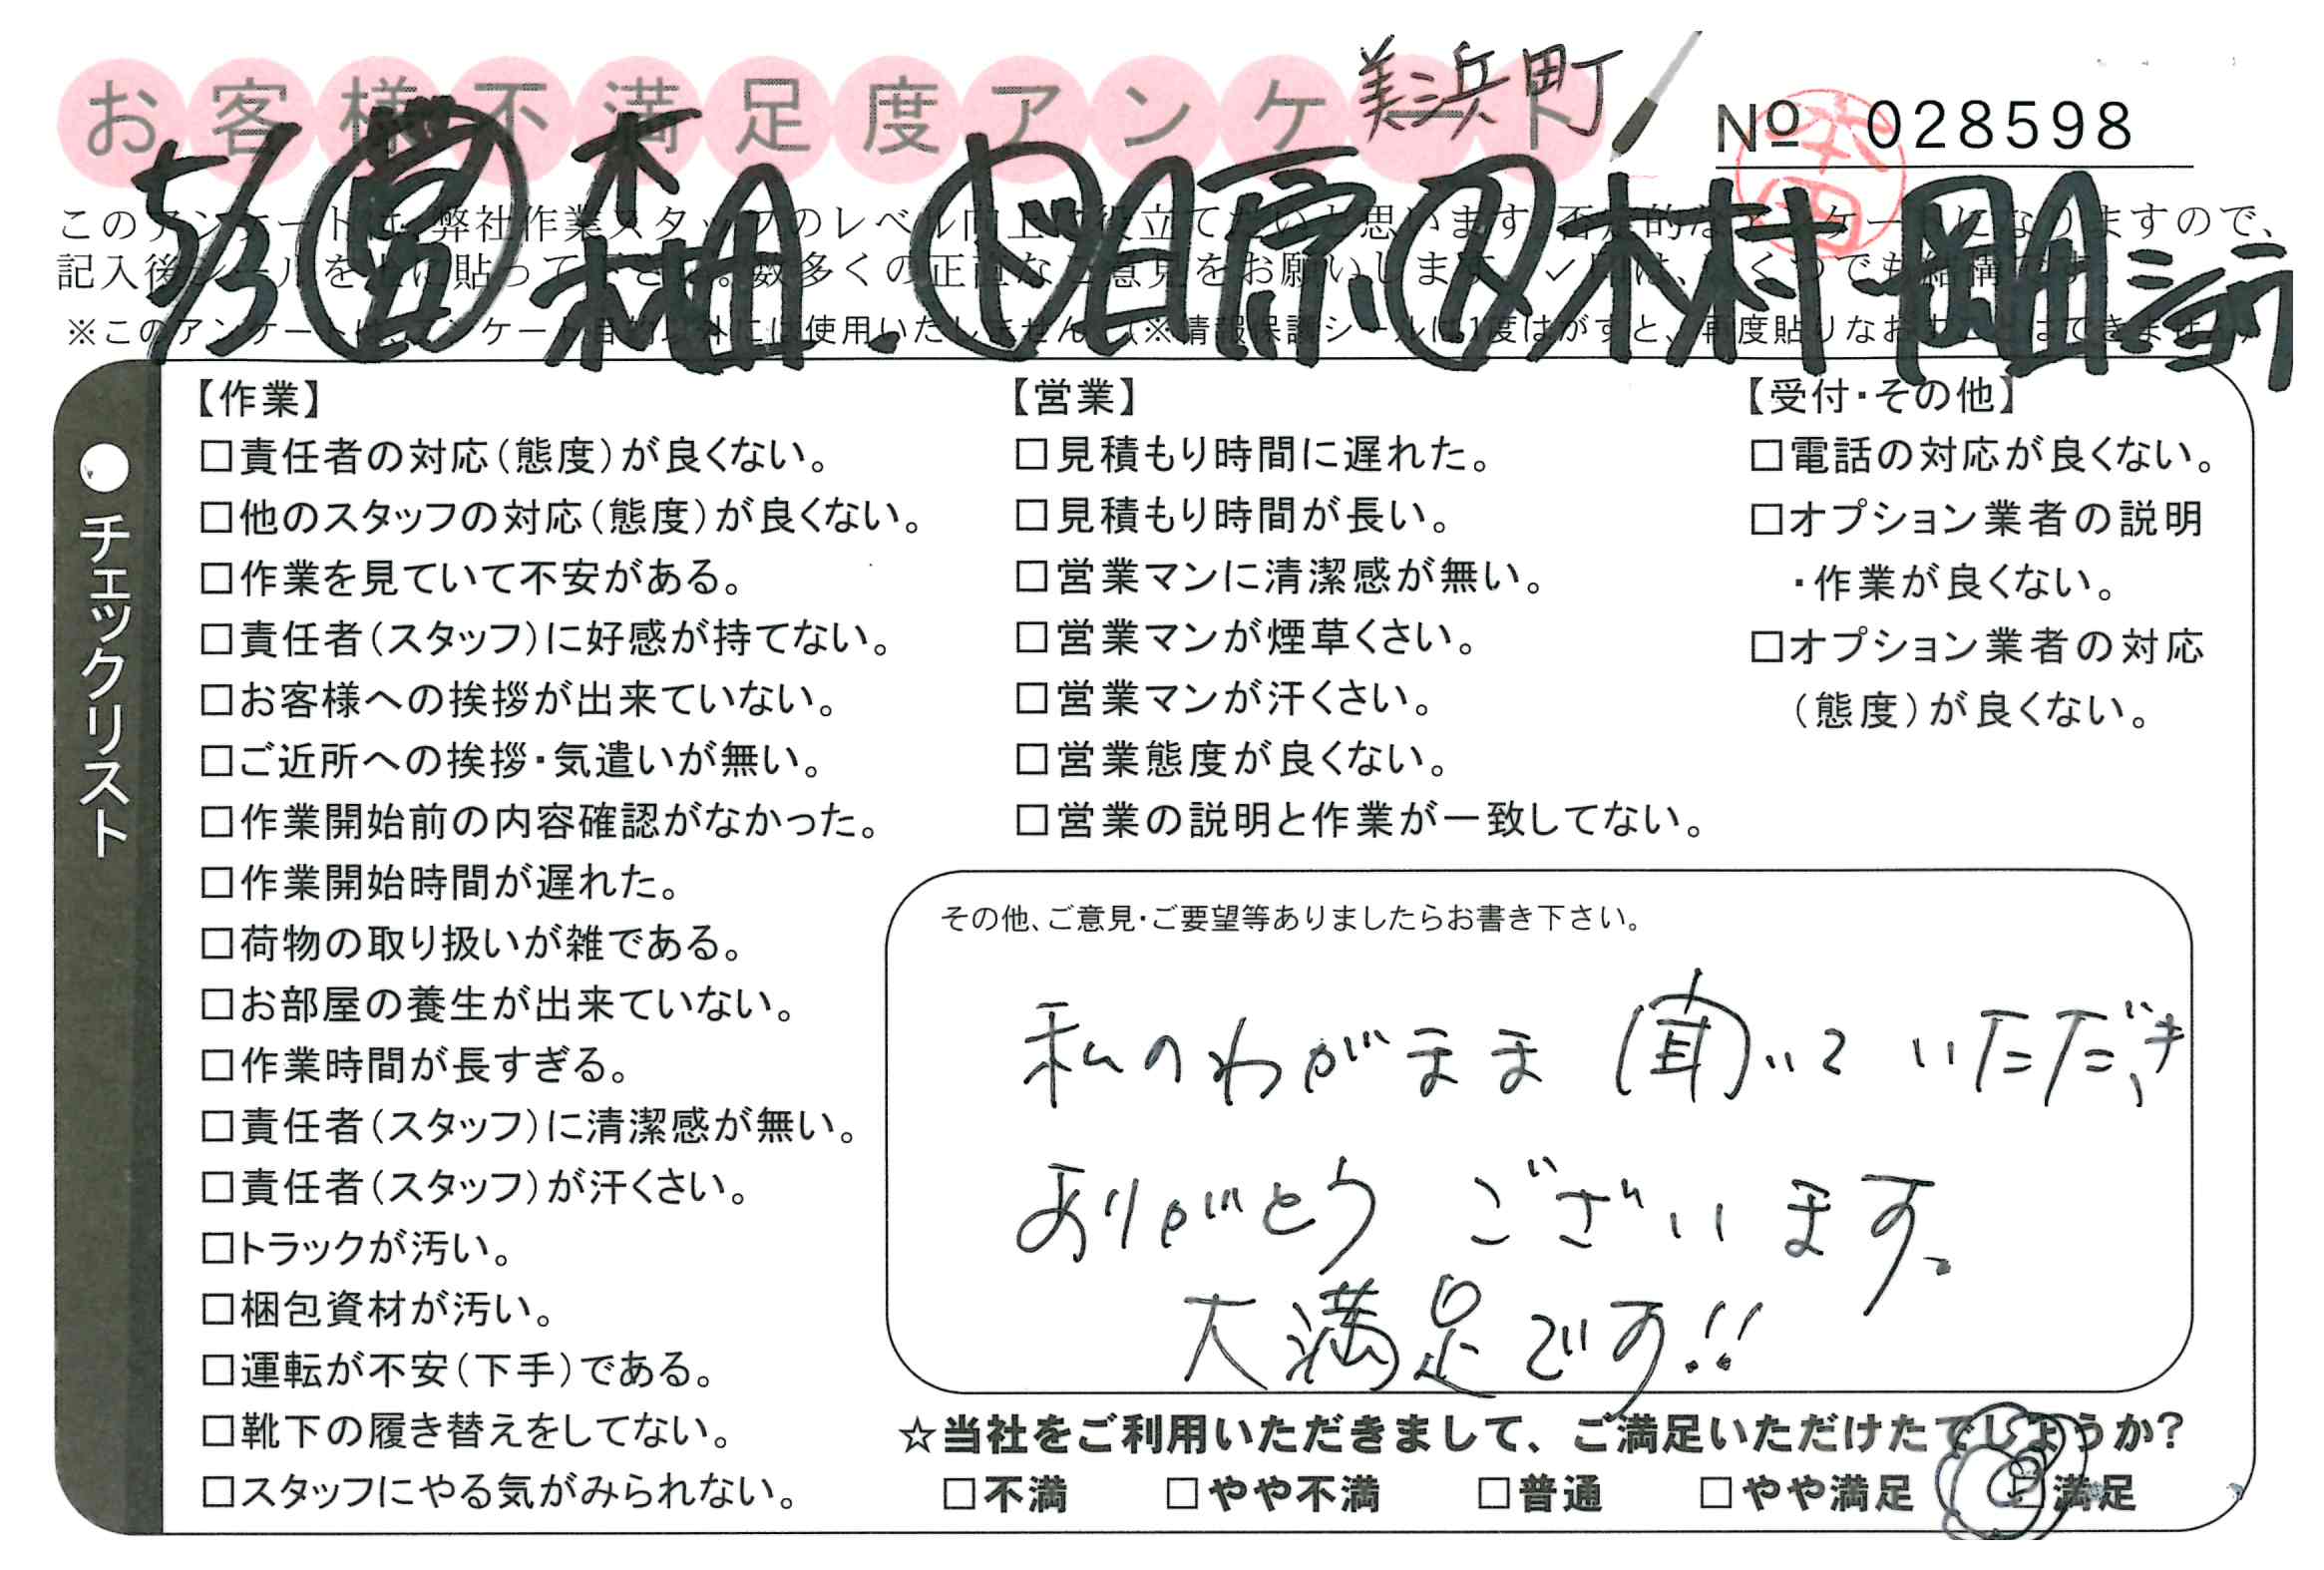 お客様不満足度アンケート
美浜町
№ 028598
5/3 営 柚木 ド 日原 木村 岡田
このアンケートは、弊社作業スタッフのレベル向上に役立てたいと思います。否定的なアンケートになりますので、
記入後シールを上に貼ってください。数多くの正直なご意見をお願いします。✓印は、いくつでも結構です。
※このアンケートは、アンケート目的以外には使用いたしません。(※情報保護シールは1度はがすと、再度貼りなおすことはできません。)
●チェックリスト
【作業】
□責任者の対応(態度)が良くない。
□他のスタッフの対応(態度)が良くない。
□作業を見ていて不安がある。
□責任者(スタッフ)に好感が持てない。
□お客様への挨拶が出来ていない。
□ご近所への挨拶・気遣いが無い。
□作業開始前の内容確認がなかった。
□作業開始時間が遅れた。
□荷物の取り扱いが雑である。
□お部屋の養生が出来ていない。
□作業時間が長すぎる。
□責任者(スタッフ)に清潔感が無い。
□責任者(スタッフ)が汗くさい。
□トラックが汚い。
□梱包資材が汚い。
□運転が不安(下手)である。
□靴下の履き替えをしてない。
□スタッフにやる気がみられない。
【営業】
□見積もり時間に遅れた。
□見積もり時間が長い。
□営業マンに清潔感が無い。
□営業マンが煙草くさい。
□営業マンが汗くさい。
□営業態度が良くない。
□営業の説明と作業が一致してない。
【受付・その他】
□電話の対応が良くない。
□オプション業者の説明
・作業が良くない。
□オプション業者の対応
(態度)が良くない。
その他、ご意見・ご要望等ありましたらお書き下さい。
私のわがまま聞いていただき
ありがとうございます。
大満足です!!
☆当社をご利用いただきまして、ご満足いただけたでしょうか?
□不満 □やや不満 □普通 □やや満足 □満足